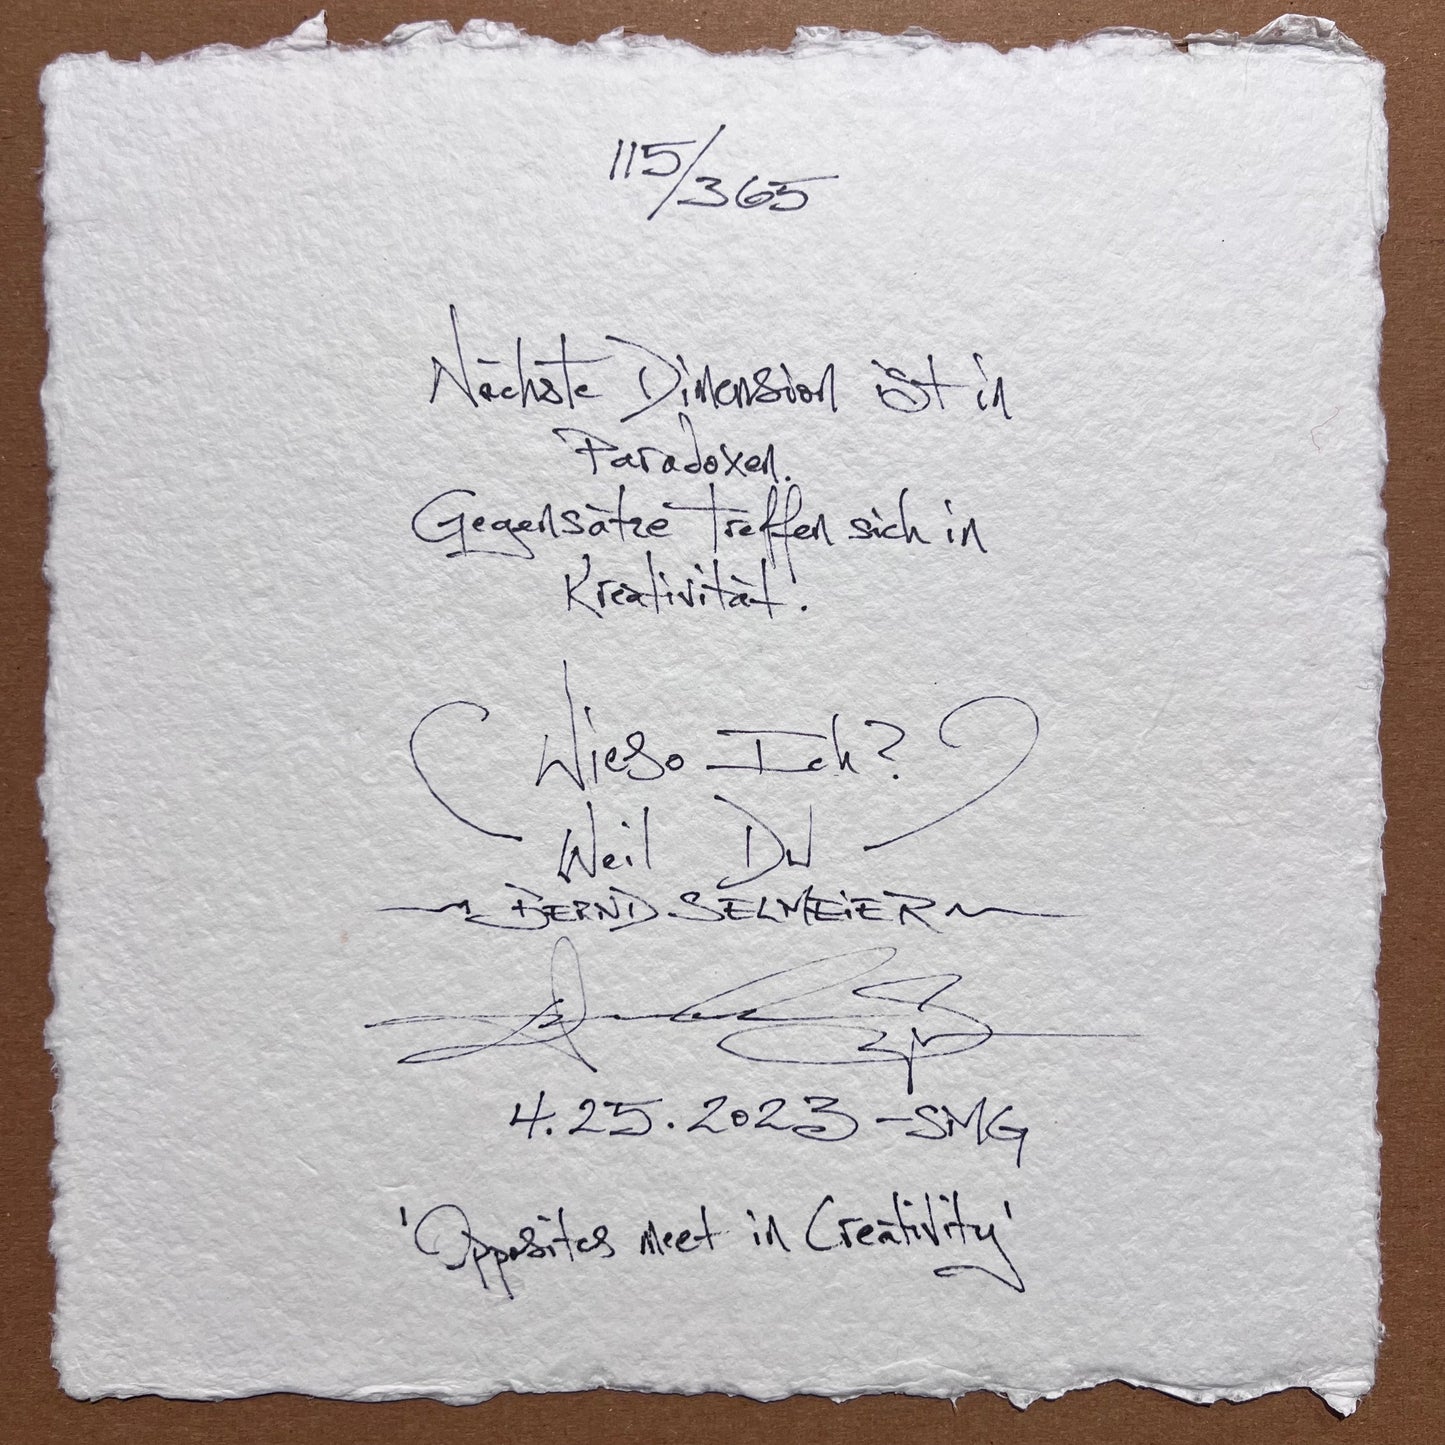 115/365
Nächste Dimension ist in
Paradoxen.
Gegensätze treffen sich in
Kreativität!
Wieso Ich?
Weil Du
BERND SELMEIER
4.25.2023 - SMG
'Opposites meet in Creativity'